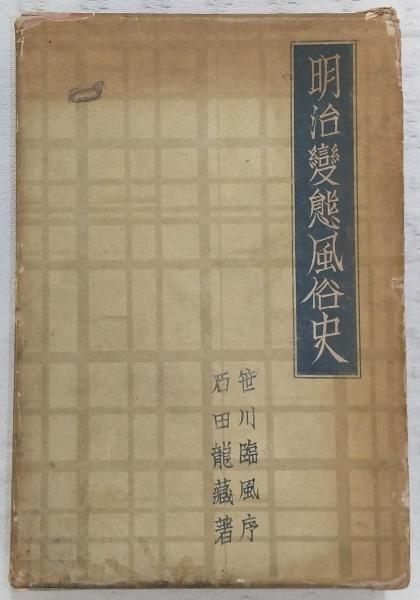 明治變態風俗史
笹川臨風序
石田龍藏著